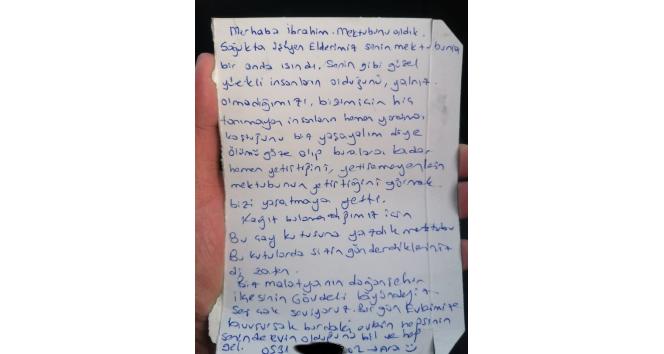 Merhaba ibrahim. Mektubunu aldık.
Soğukta üşüyen Ellerimiz senin mektubunla
bir anda ısındı. Senin gibi güzel
yürekli insanların olduğunu, yalnız
olmadığımızı, bizim için hiç
tanımayan insanların hemen yardıma
koştuğunu biz yaşayalım diye
ölümü göze alıp buralara kadar
hemen yetiştiğini, yetişemeyenlerin
mektubunun yetiştiğini görmek
bizi yaşatmaya yetti.
Kağıt bulamadığımız için
Bu çay kutusuna yazdık mektubu
Bu kutularda sizin gönderdikleriniz
di zaten.
Biz malatyanın doğanşehir
ilçesinin Gövdeli köyündeyiz.
Seni çok seviyoruz. Bir gün Evimize
kavuşursak burdaki evlerin hepsinin
senin de evin olduğunu bil ve hep
gel. 0531